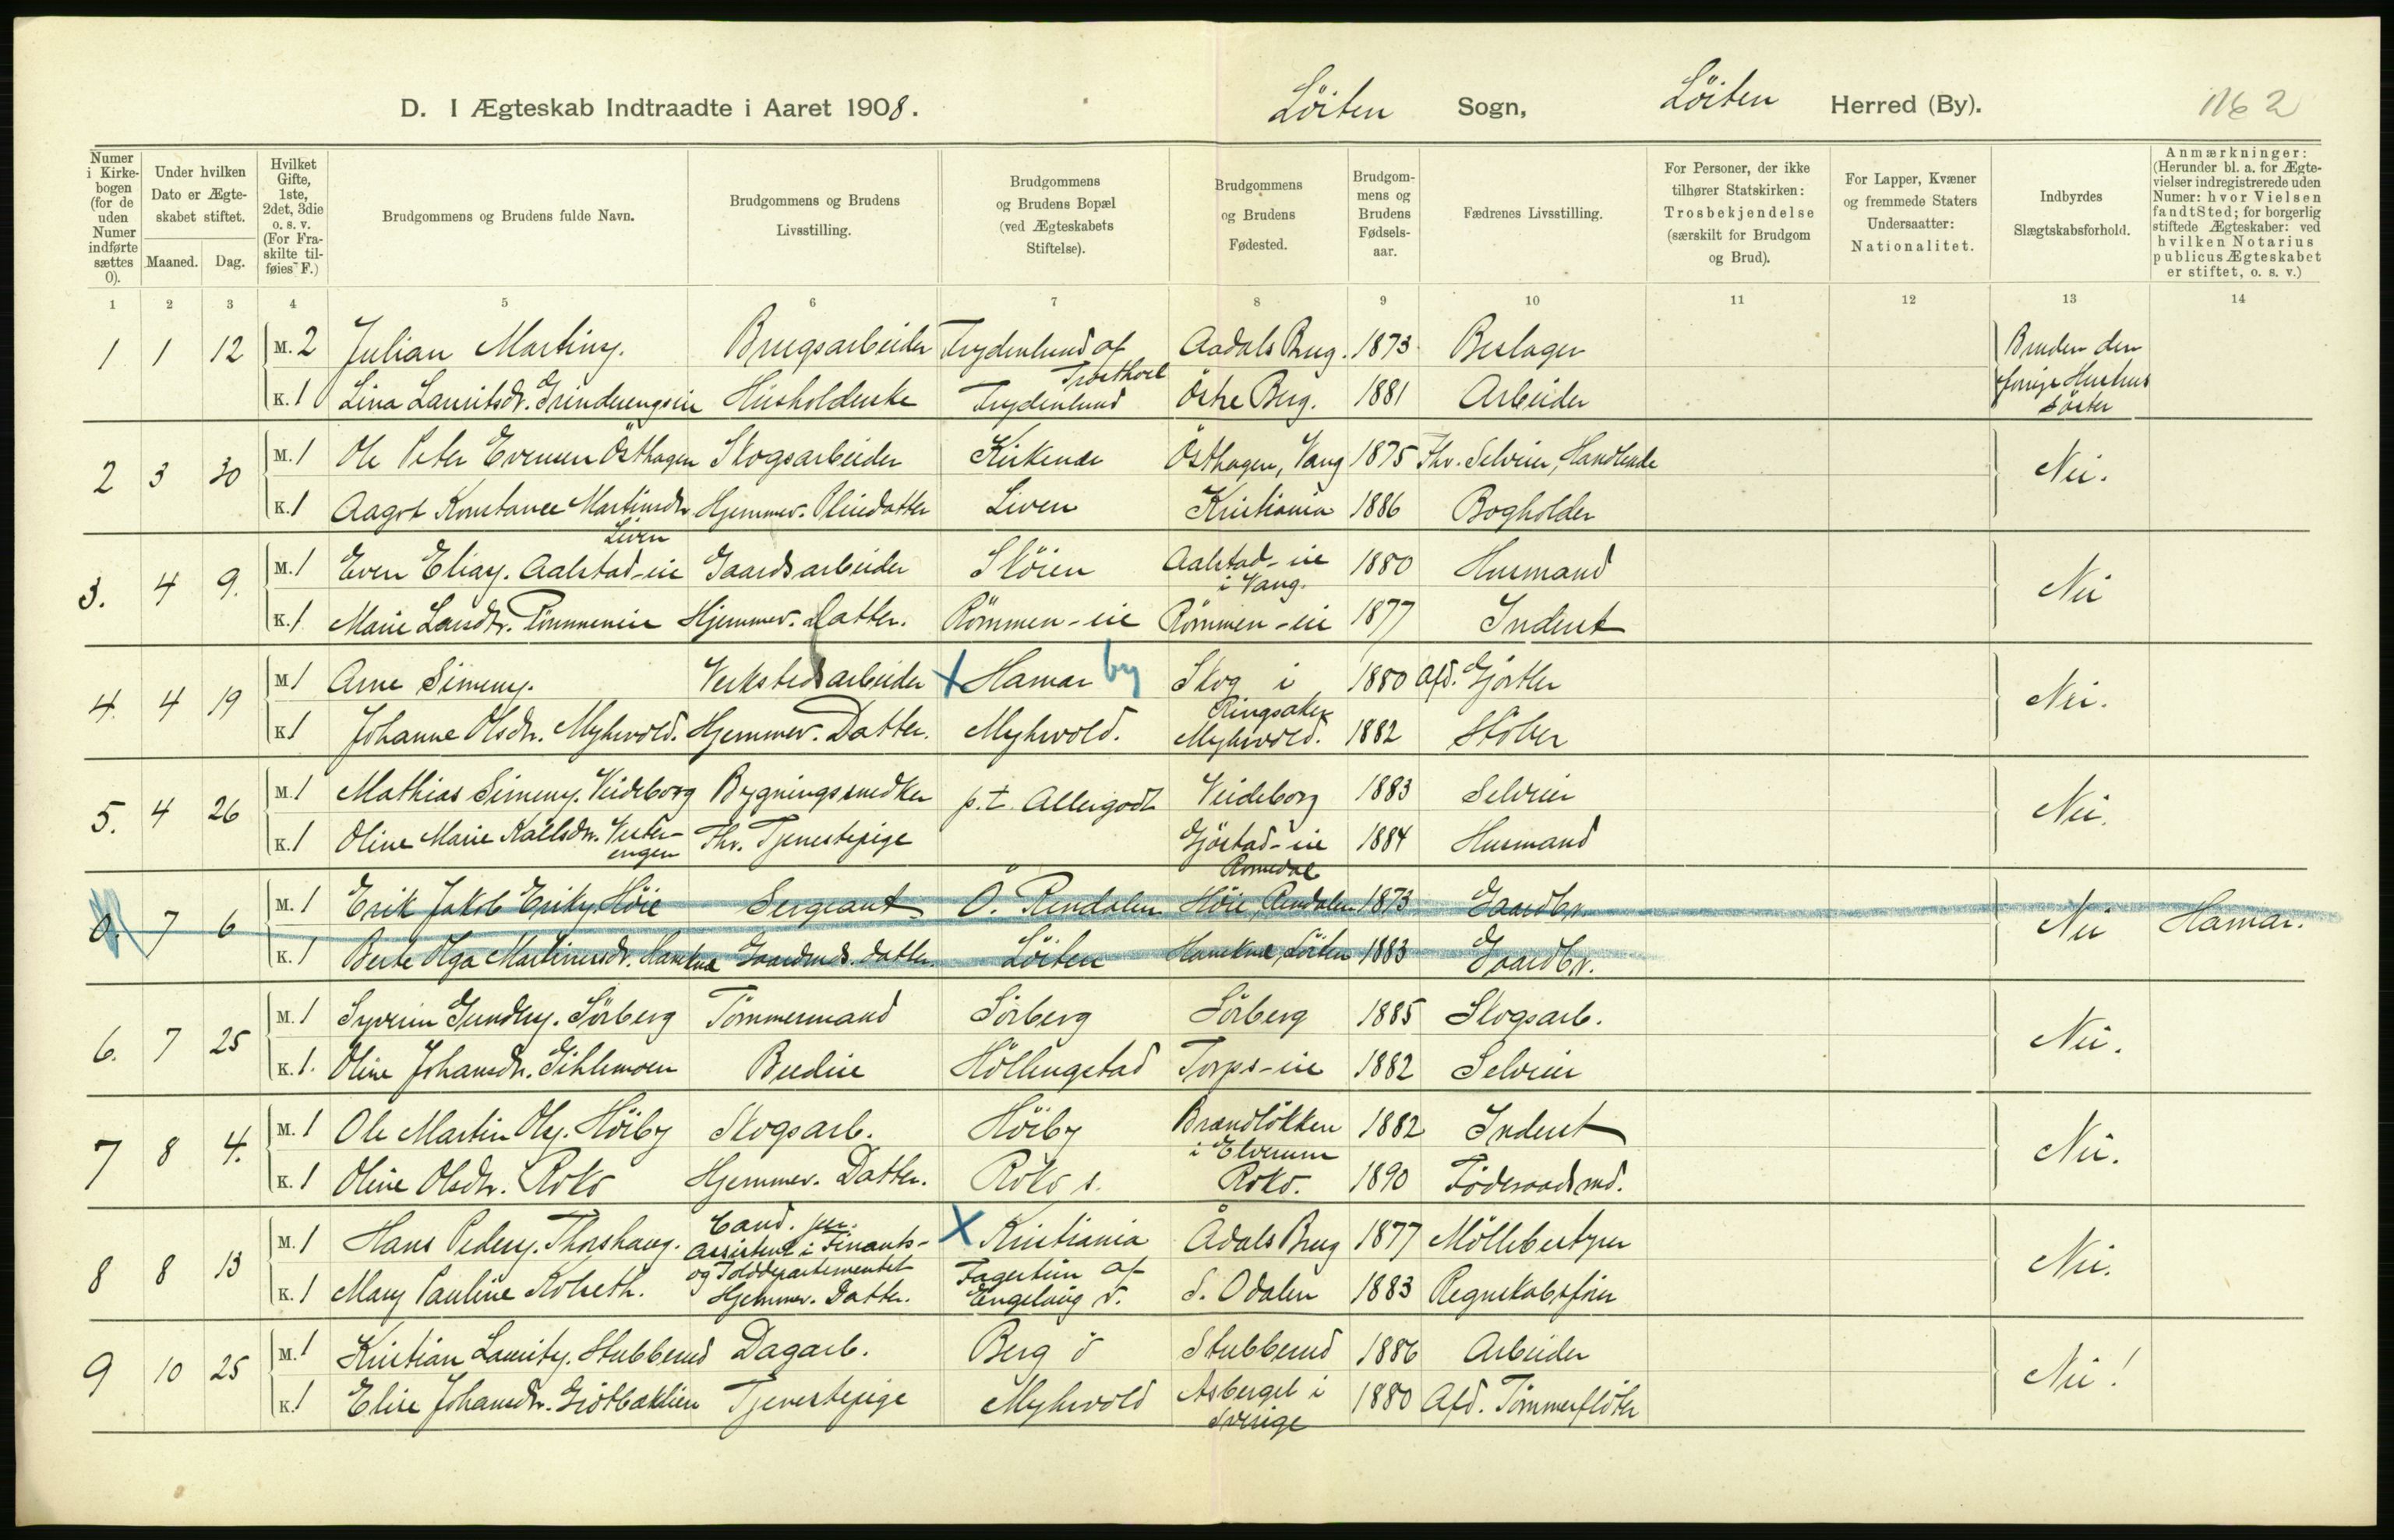 D. I Ægteskab Indtraadte i Aaret 1908.
Löiten Sogn, Löiten Herred (By).
No 2
Numer i Kirkebogen (for de uden Numer indførte sættes 0).
Under hvilken Dato er Ægteskabet stiftet.
Maaned. Dag.
Hvilket Gifte, 1ste, 2det, 3die o. s. v. (For Fraskilte tilføies F.)
Brudgommens og Brudens fulde Navn.
Brudgommens og Brudens Livsstilling.
Brudgommens og Brudens Bopæl (ved Ægteskabets Stiftelse).
Brudgommens og Brudens Fødested.
Brudgommens og Brudens Fødselsaar.
Fædrenes Livsstilling.
For Personer, der ikke tilhører Statskirken: Trosbekjendelse (særskilt for Brudgom og Brud).
For Lapper, Kvæner og fremmede Staters Undersaatter: Nationalitet.
Indbyrdes Slægtskabsforhold.
Anmærkninger: (Herunder bl. a. for Ægtevielser indregistrerede uden Numer: hvor Vielsen fandt Sted; for borgerlig stiftede Ægteskaber: ved hvilken Notarius publicus Ægteskabet er stiftet, o. s. v.)
1 2 3 4 5 6 7 8 9 10 11 12 13 14
1 1 12 M. 2 Julian Martins. Brugsarbeider Frydenlund af Aadals Brug. 1873 Beslager Bruden den
K. 1 Lina Lauritsdr. Husholderske Frydenlund Östre Berg. 1881 Arbeider forrige Hustrus Söster
2 3 30 M. 1 Ole Peter Evensen Östhagen Skogsarbeider Kirkende Östhagen, Vang 1875 Fhv. Selveier, Handlende Nei.
K. 1 Aagot Konstance Martinsdr. Liven Hjemmev. Pleiedatter Liven Kristiania 1886 Bogholder
3. 4 9. M. 1 Even Elias. Aalstad-eie Gaardsarbeider Sköien Aalstad-eie i Vang. 1880 Husmand Nei
K. 1 Marie Larsdtr. Römmeneie Hjemmev. Datter. Römmen-eie Römmen-eie 1877 Inderst
4. 4 19 M. 1 Arne Simens. Verkstedsarbeider Hamar by Skog i Ringsaker 1880 Afd. Gjörtler Nei.
K. 1 Johanne Olsdr. Myhrvold. Hjemmev. Datter. Myhrvold. Myhrvold. 1882 Stöber
5. 4 26 M. 1 Mathias Simens. Veideborg Bygningssnedker p.t. Allergodt Veideborg 1883 Selveier Nei.
K. 1 Oline Marie Karlsdr. Vesterengen Fhv. Tjenestepige Gjörstad-eie Romedal 1884 Husmand
0. 7 6 M. 1 Erik Jakob Eriks. Höie Sergeant Ö. Rendalen Höie, Rendalen 1873 Gaardbr. Nei Hamar.
K. 1 Berte Olga Martinusdr. Gaardmds. datter. Löiten Löiten 1883 Gaardbr.
6. 7 25 M. 1 Syverin Gunders. Sörberg Tömmermand Sörberg Sörberg 1885 Skogsarb. Nei.
K. 1. Oline Johansdr. Sihlemoen Budeie Höllingstad Torps-eie 1882 Selveier
7 8 4. M. 1 Ole Martin Ols. Höiby Skogsarb. Höiby Brændlökken i Elverum 1882 Inderst Nei.
K. 1 Oline Olsdr. Roko Hjemmev. Datter. Roko s. Roko. 1890 Föderaadsmd.
8 8 13 M. 1 Hans Peders. Thorshaug. Cand. jur. Assistent i Finants- og Tolddepartementet Kristiania Ådals Brug 1877 Möllebestyrer Nei.
K. 1 Mary Pauline Kolseth. Hjemmev. Datter. Fagertun af Engelaug v. S. Odalen 1883 Regnskabsförer
9 10 25 M. 1 Kristian Laurits. Stubberud Dagarb. Berg ö Stubberud 1886 Arbeider Nei!
K. 1 Elise Johansdr. Grötbækken Tjenestepige Myhrvold Asberget i Sverige 1880 Afd. Tömmerflöter